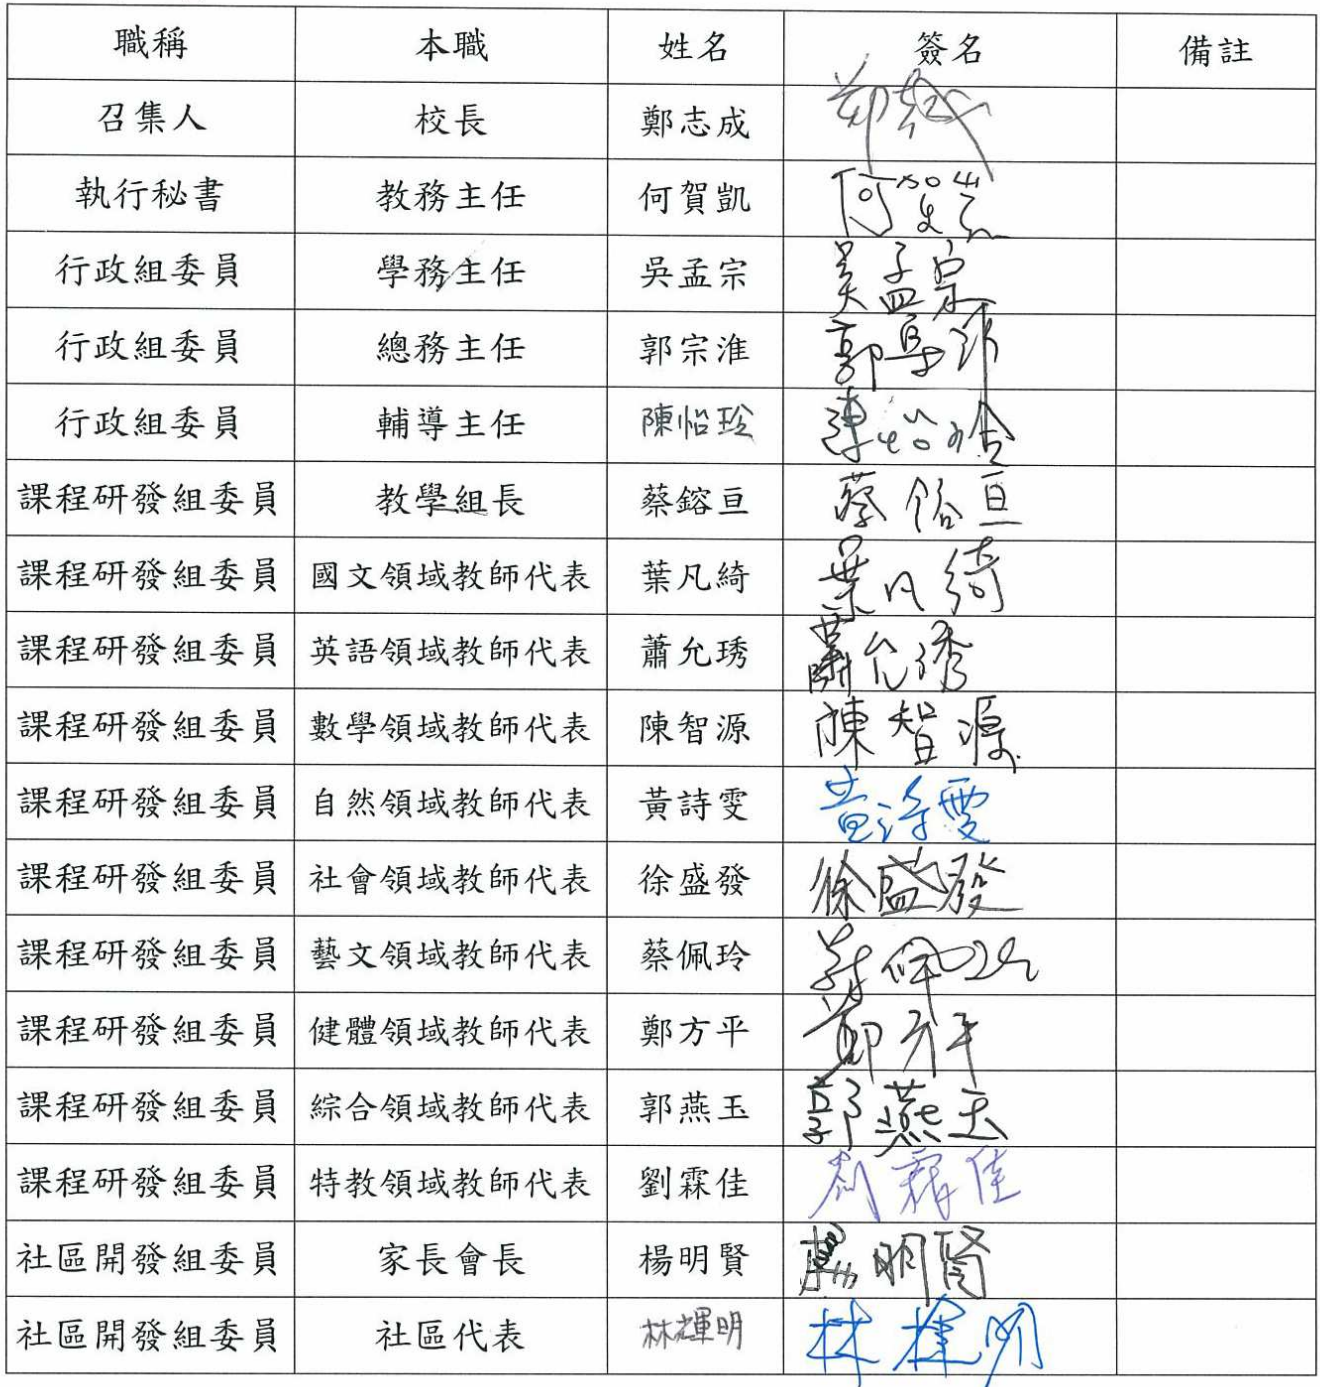 職稱 本職 姓名 簽名 備註
召集人 校長 鄭志成
執行秘書 教務主任 何賀凱 何
行政組委員 學務主任 吳孟宗 吳孟宗
行政組委員 總務主任 郭宗淮 郭
行政組委員 輔導主任 陳怡玲 陳怡玲
課程研發組委員 教學組長 蔡鎔亘 蔡鎔亘
課程研發組委員 國文領域教師代表 葉凡綺 葉凡綺
課程研發組委員 英語領域教師代表 蕭允琇 蕭允琇
課程研發組委員 數學領域教師代表 陳智源 陳智源
課程研發組委員 自然領域教師代表 黃詩雯 黃詩雯
課程研發組委員 社會領域教師代表 徐盛發 徐盛發
課程研發組委員 藝文領域教師代表 蔡佩玲 蔡佩玲
課程研發組委員 健體領域教師代表 鄭方平 鄭方平
課程研發組委員 綜合領域教師代表 郭燕玉 郭燕玉
課程研發組委員 特教領域教師代表 劉霖佳 劉霖佳
社區開發組委員 家長會長 楊明賢 楊明賢
社區開發組委員 社區代表 林輝明 林輝明